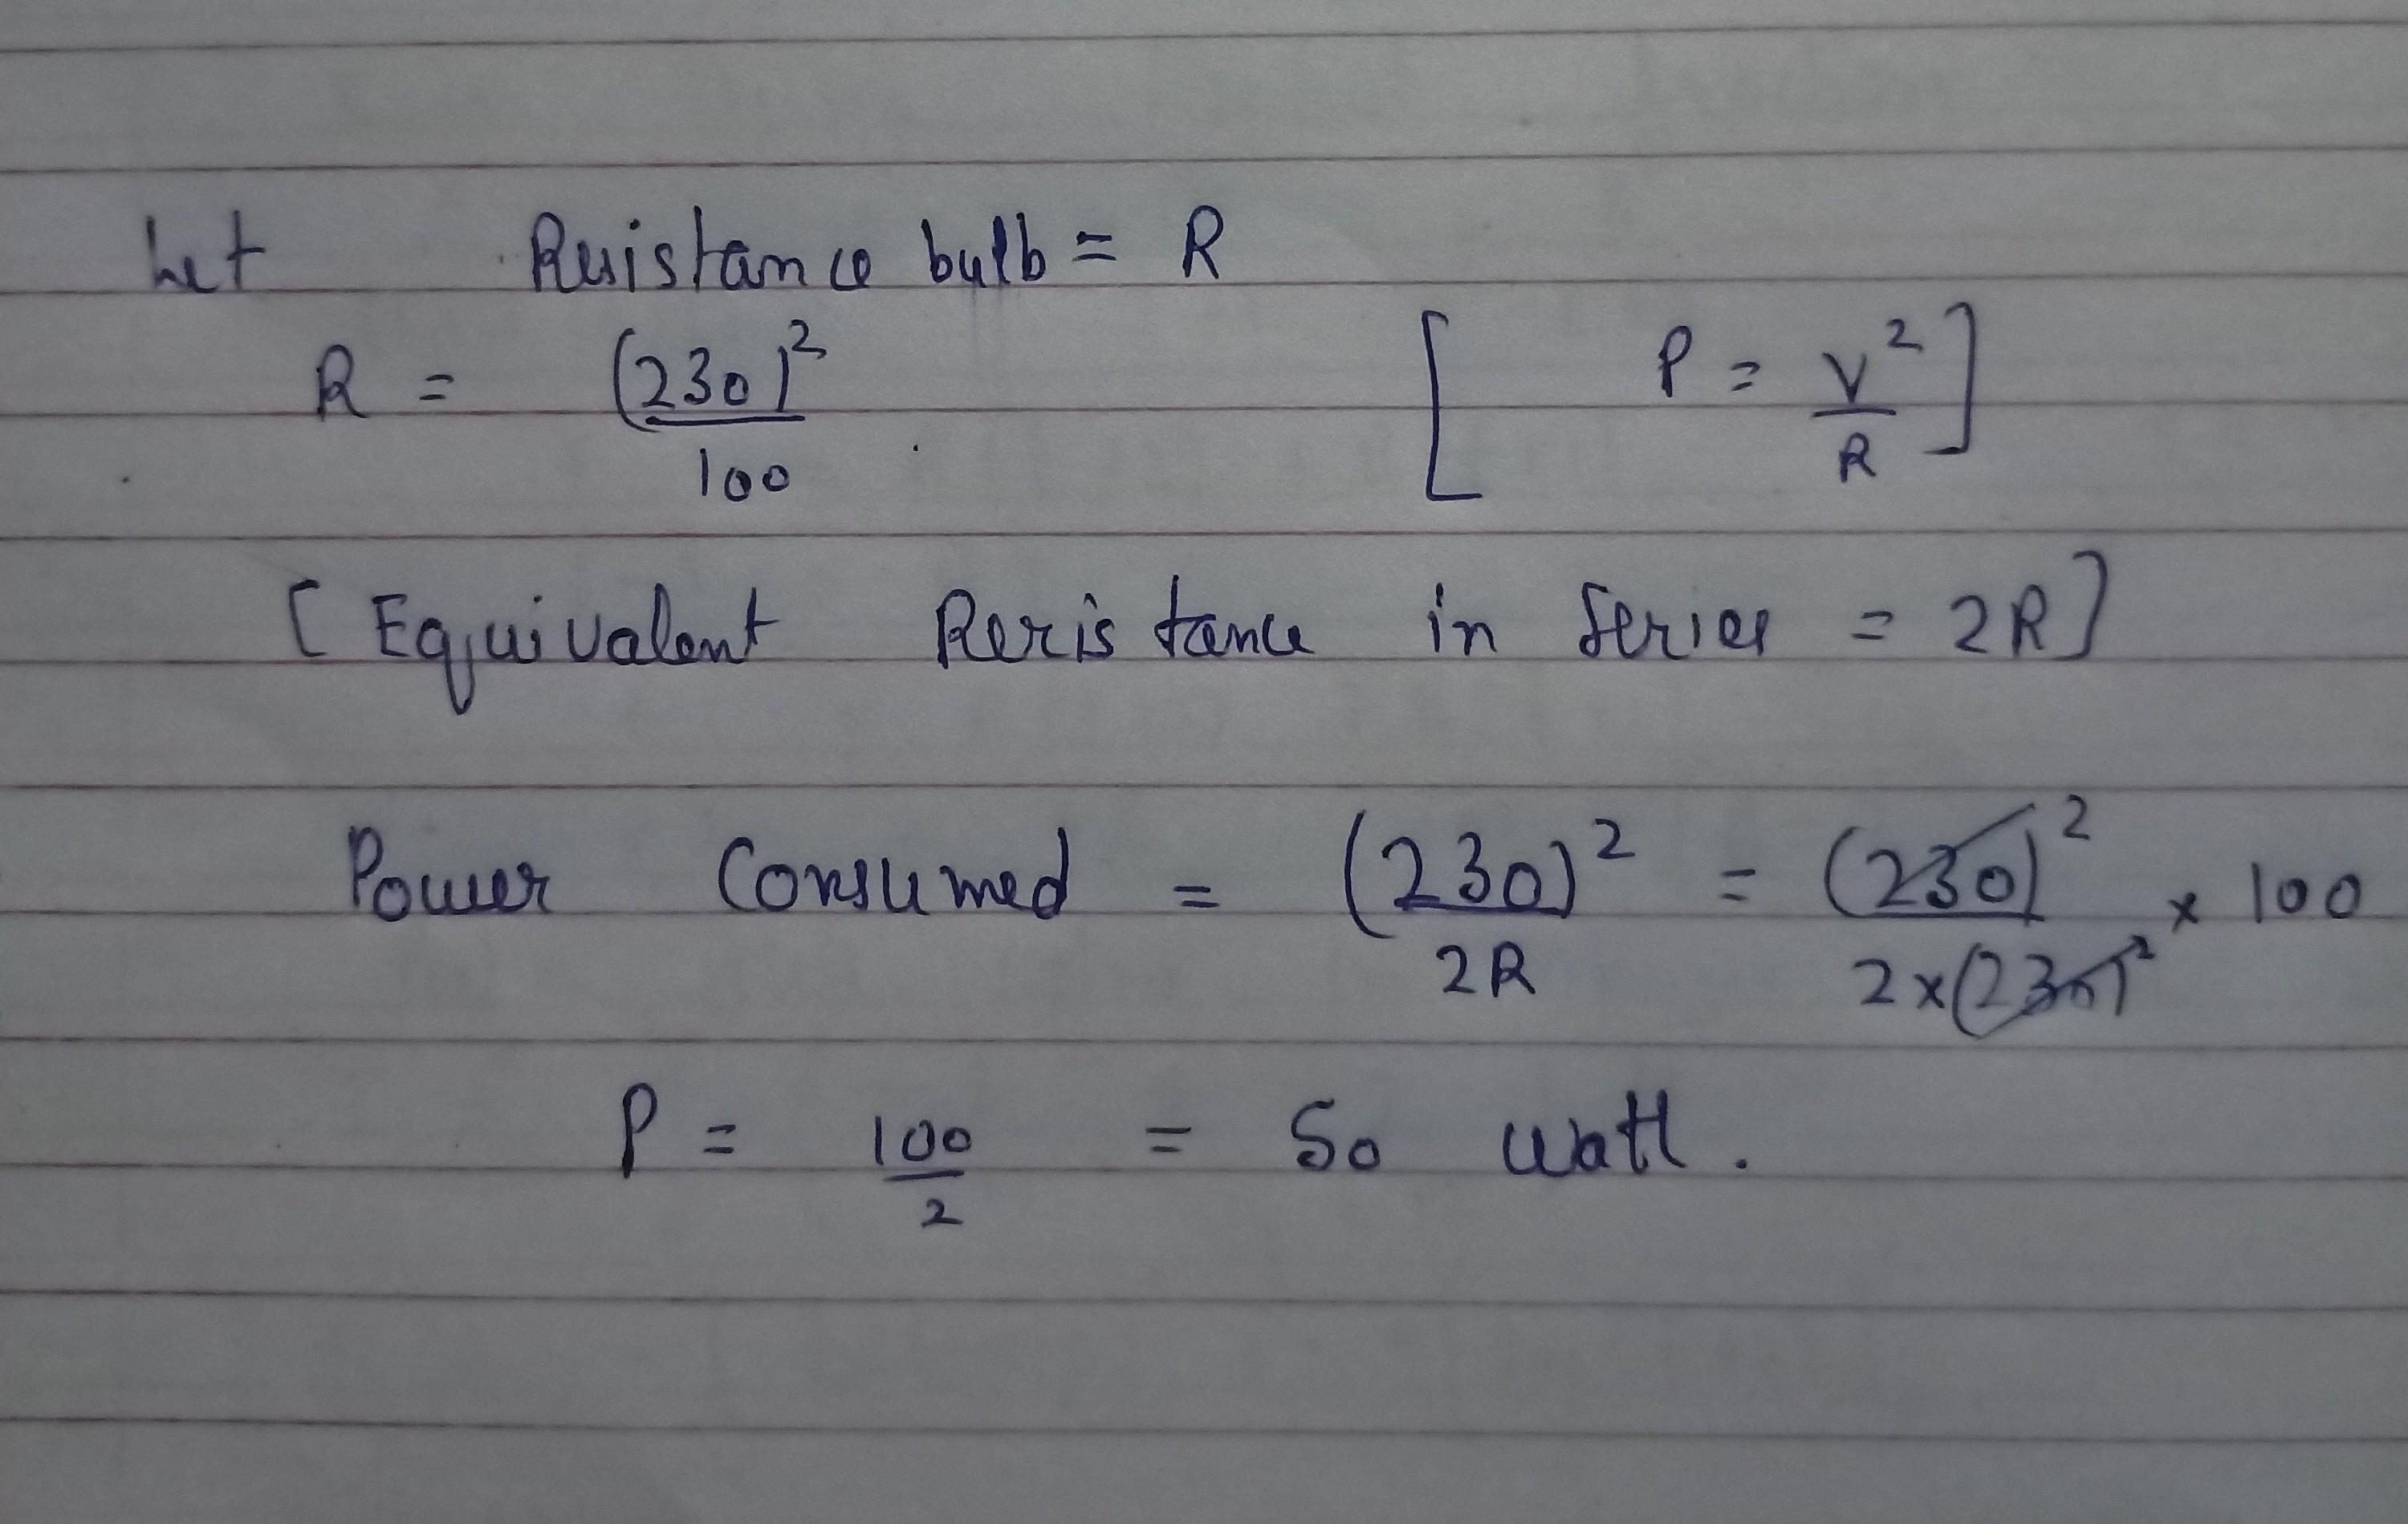 Let Resistance bulb = R
R = (230)²/100 [ P = V²/R ]
[ Equivalent Resistance in Series = 2R ]
Power Consumed = (230)²/2R = (230)²/2×(230)² × 100
P = 100/2 = 50 watt.